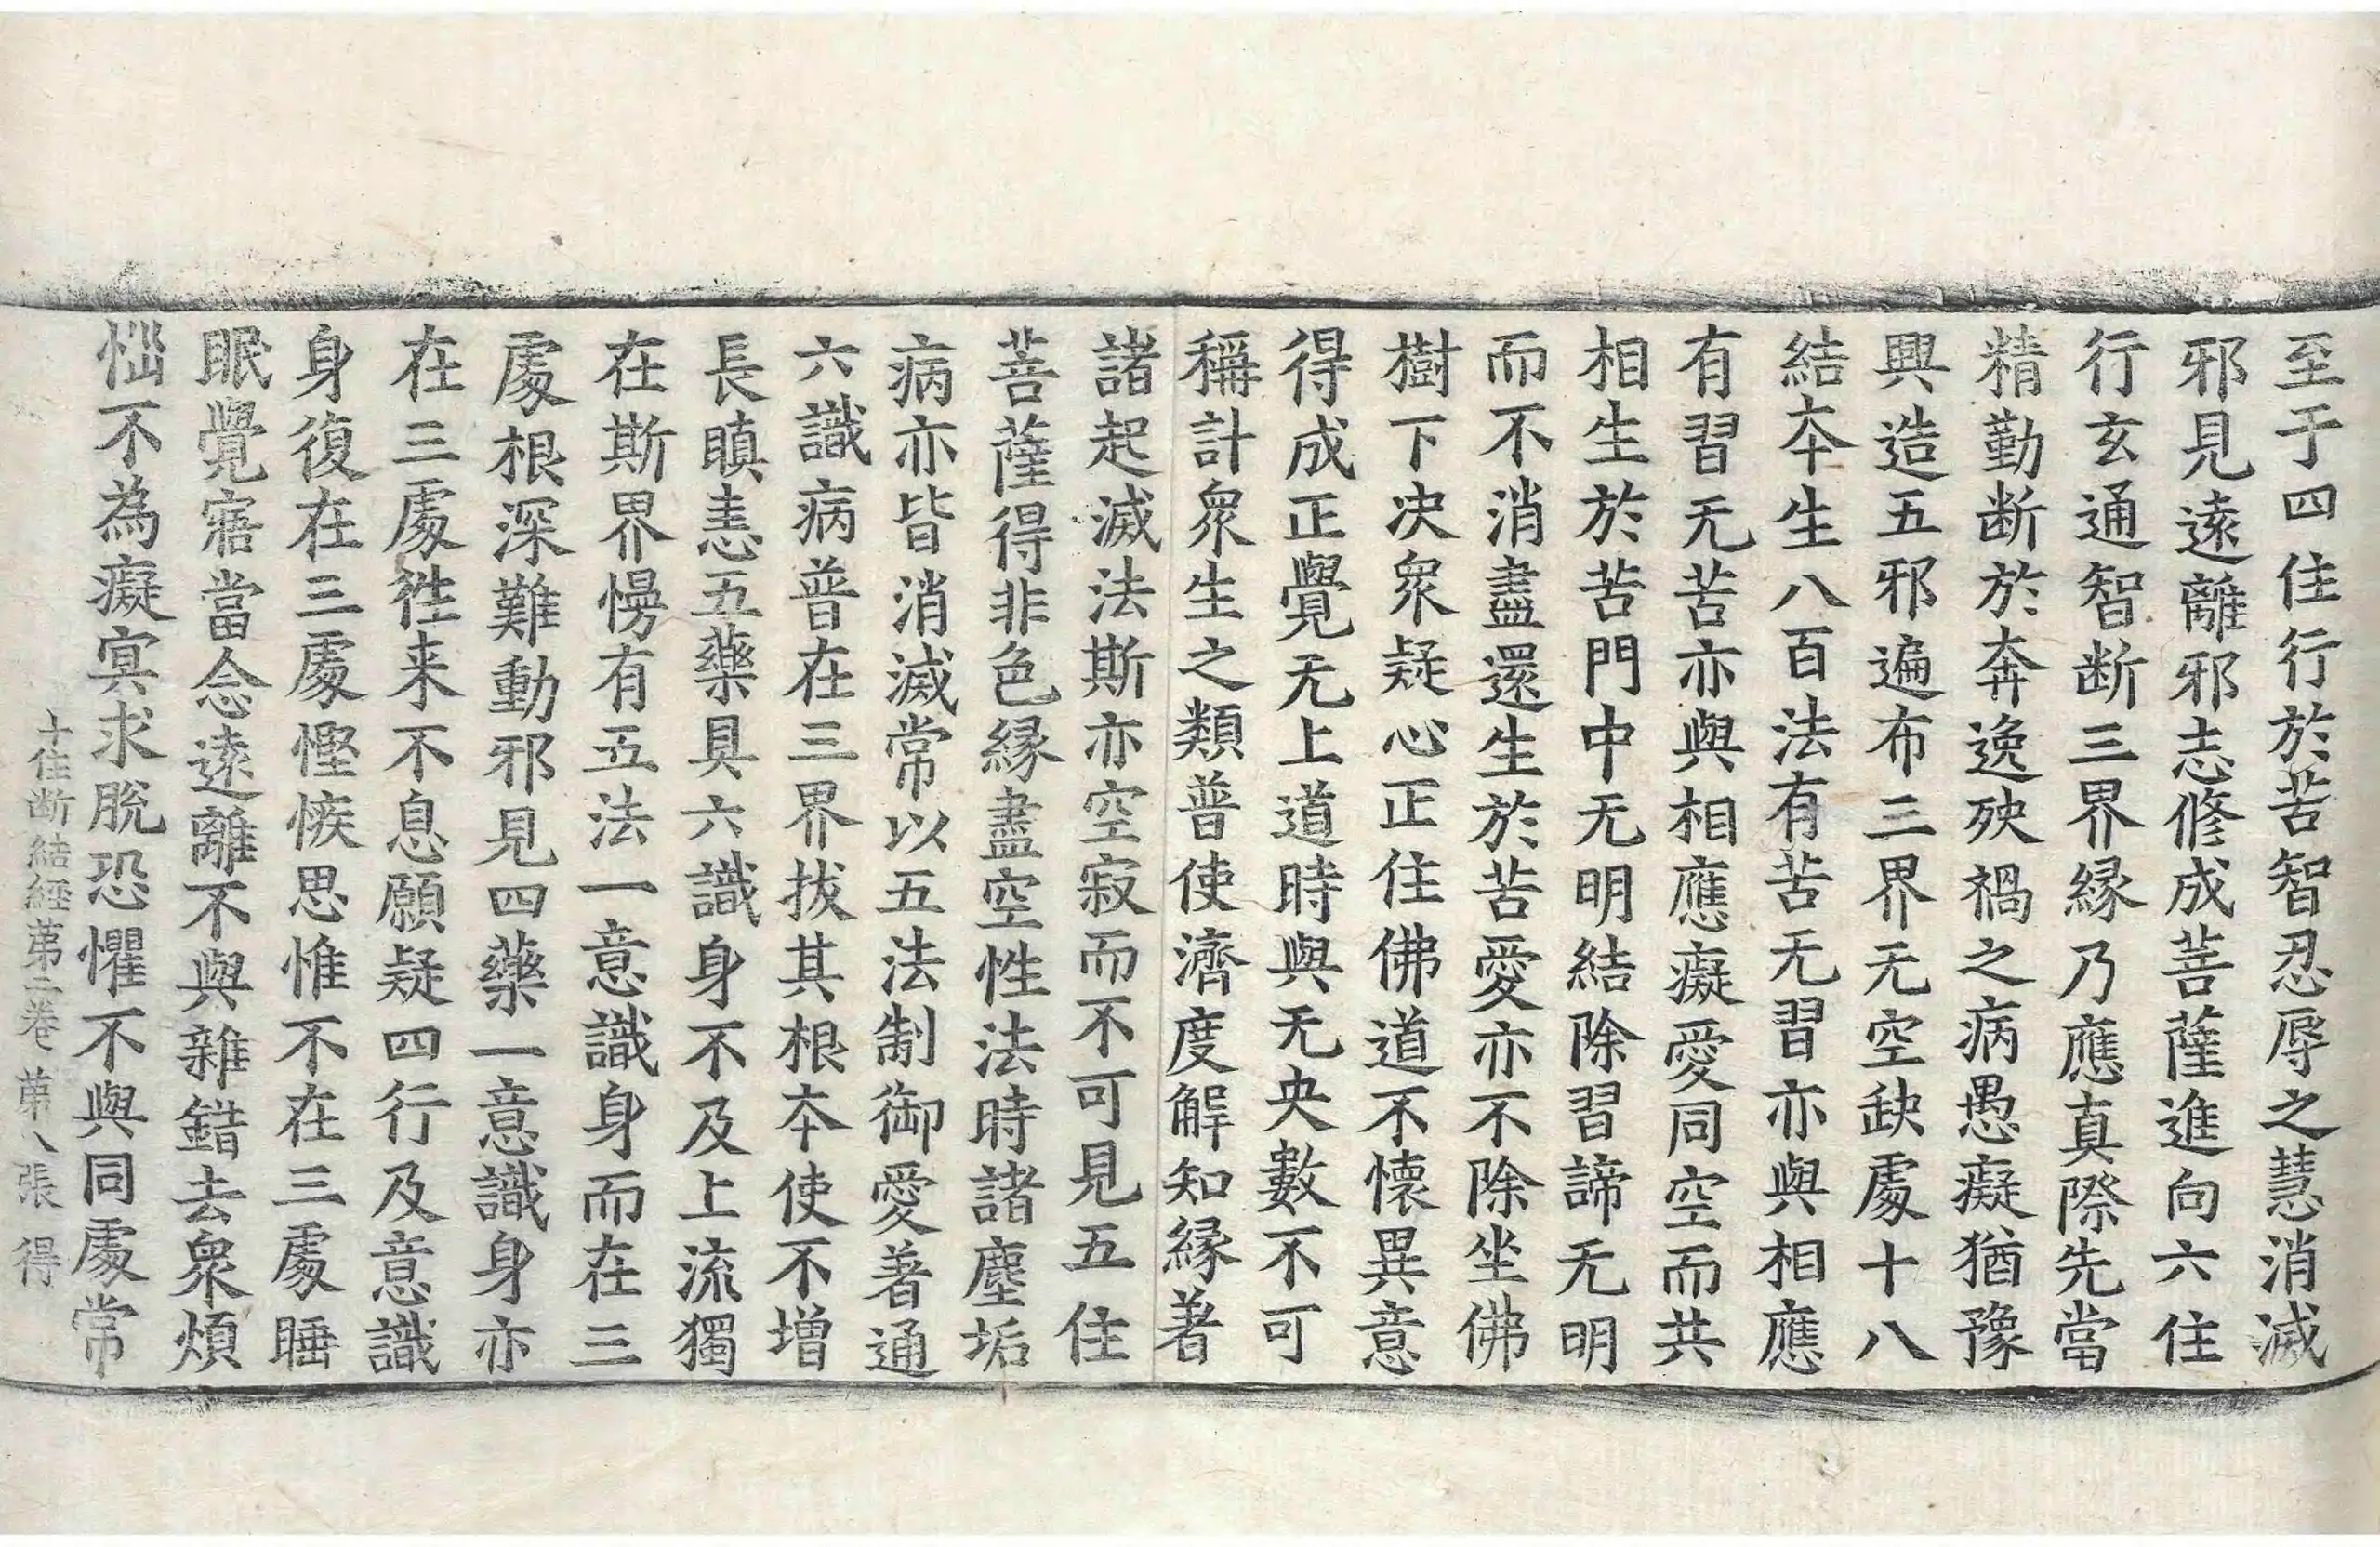 至于四住行於苦智忍辱之慧消滅
邪見遠離邪志修成菩薩進向六住
行玄通智断三界縁乃應真際先當
精勤断於奔逸殃禍之病愚癡猶豫
興造五邪遍布三界无空缺處十八
結夲生八百法有苦无習亦與相應
有習无苦亦與相應癡愛同空而共
相生於苦門中无明結除習諦无明
而不消盡還生於苦愛亦不除坐佛
樹下决衆疑心正住佛道不懷異意
得成正覺无上道時與无央數不可
稱計衆生之類普使濟度解知縁著
諸起滅法斯亦空寂而不可見五住
菩薩得非色縁盡空性法時諸塵垢
病亦皆消滅常以五法制御愛著通
六識病普在三界拔其根夲使不增
長瞋恚五藥具六識身不及上流獨
在斯界慢有五法一意識身而在三
處根深難動邪見四藥一意識身亦
在三處徃来不息願疑四行及意識
身復在三處慳悋思惟不在三處睡
眠覺寤當念遠離不與雜錯去衆煩
惱不為癡冥求脫恐懼不與同處常
十住断結經苐二卷 苐八張 得